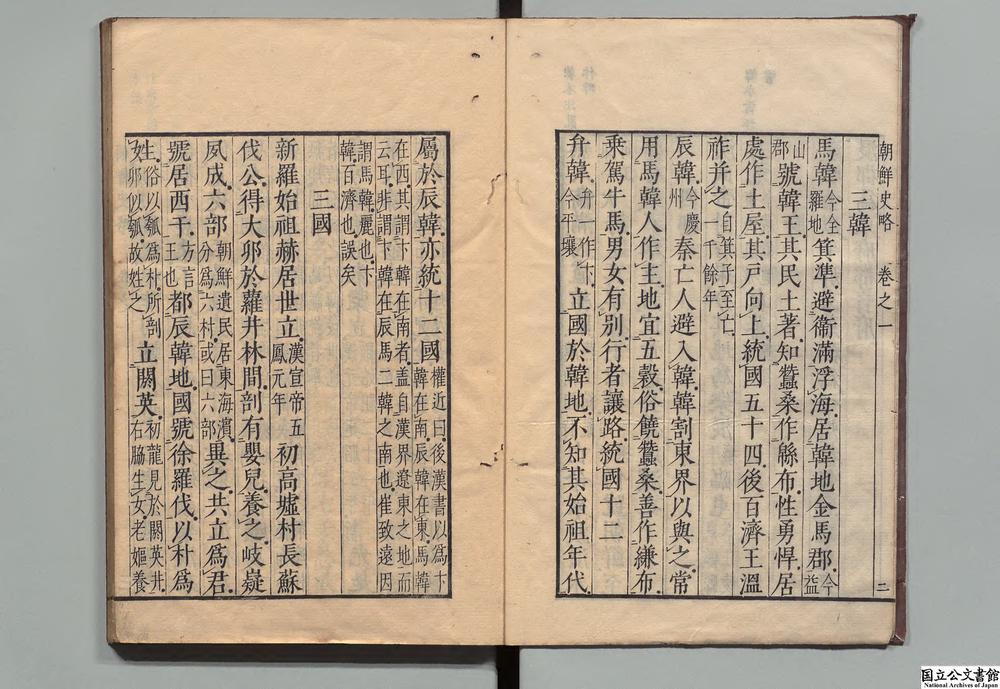 朝鮮史略 卷之一 二
三韓
馬韓今全羅地箕準避衛滿浮海居韓地金馬郡今益
山郡號韓王其民土著知蠶桑作緜布性勇悍居
處作土屋其戸向上統國五十四後百濟王溫
祚并之自箕子至亡一千餘年
辰韓今慶州秦亡人避入韓韓割東界以與之常
用馬韓人作主地宜五穀俗饒蠶桑善作縑布
乗駕牛馬男女有別行者讓路統國十二
弁韓弁一作卞今平壤立國於韓地不知其始祖年代
屬於辰韓亦統十二國權近曰後漢書以為卞韓在南辰韓在東馬韓
在西其謂卞韓在南者盖自漢界遼東之地而云耳非謂卞韓在辰馬二韓之南也崔致遠因
謂馬韓麗也卞韓百濟也誤矣
三國
新羅始祖赫居世立漢宣帝五鳳元年初高墟村長蘇
伐公得大卵於蘿井林間剖有嬰兒養之岐嶷
夙成六部朝鮮遺民居東海濱分爲六村或曰六部異之共立爲君
號居西干方言王也都辰韓地國號徐羅伐以朴爲
姓俗以瓠爲朴所剖卵似瓠故姓之立閼英初龍見於閼英井右脇生女老嫗養
国立公文書館
National Archives of Japan